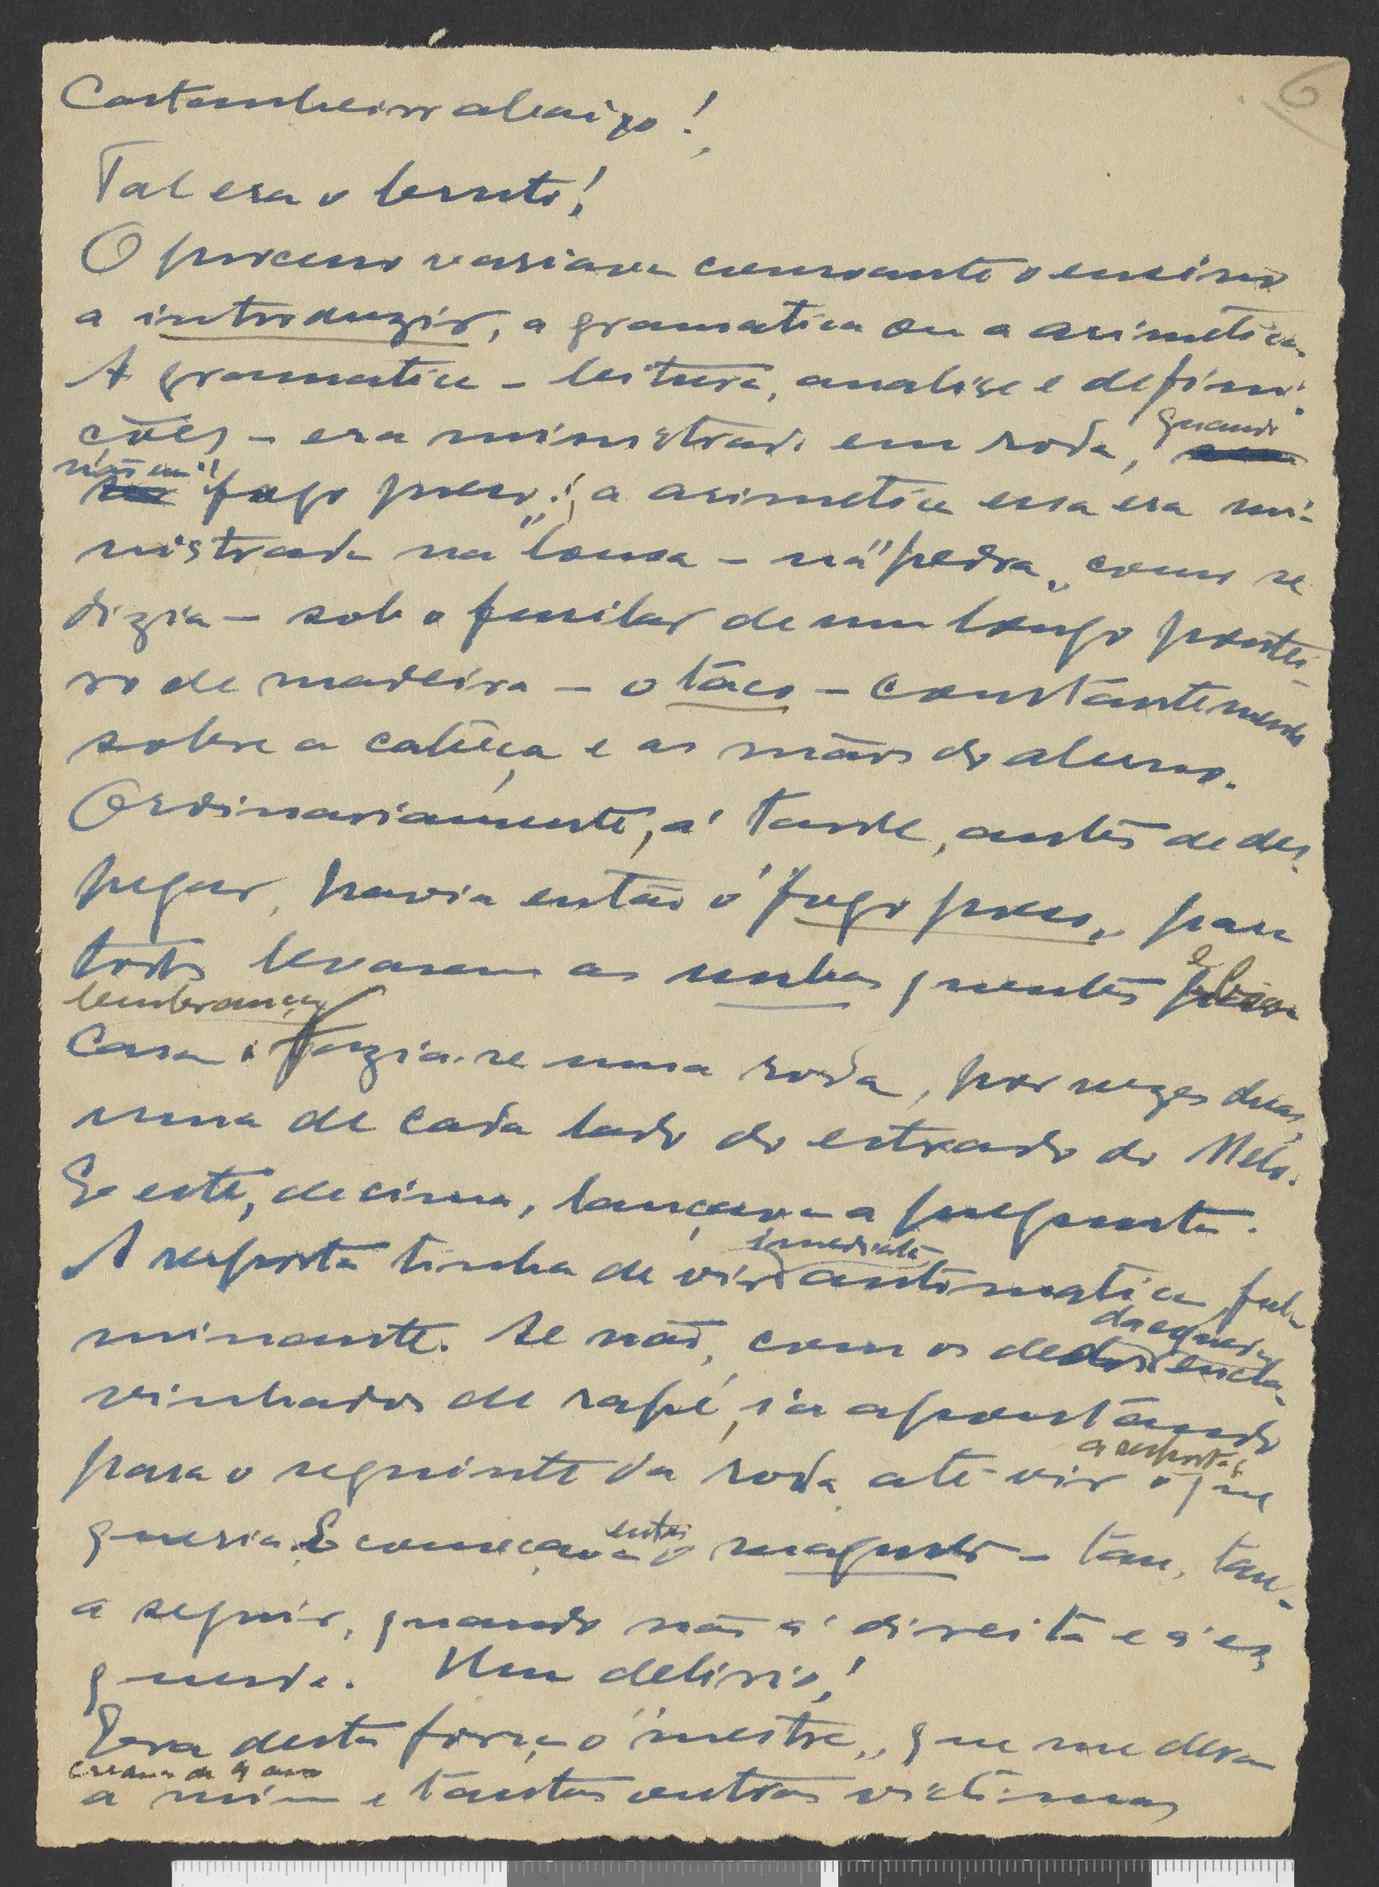 6
Castanheiro abaixo!
Tal era o bruto!
O processo variava consoante o ensino
a introduzir, a gramatica ou a arimetica.
A gramatica - leitura, analise e defini-
ções - era ministrada em roda, quando
não em "fogo preso"; a arimetica essa era mi-
nistrada na "lousa - na "pedra" como se
dizia - sob o fusilar de um longo pontei-
ro de madeira - o táco - constantemente
sobre a cabeça e as mãos do aluno.
Ordinariamente, á tarde, antes de des-
pegar, havia então o "fogo preso", para
todos levarem as unhas quentes e
lembrança
casa. Fazia-se uma roda, por vezes duas,
uma de cada lado do estrado do Melo.
E este, de cima, lançava a pregunta.
A resposta tinha de vir imediata automatica, ful-
minante. Se não, com os dedos da esquerda encla-
vinhados de rapé, ia apontando
para o seguinte da roda até vir a resposta que
queria. E começava então o magusto - tau, tau -
a seguir, quando não á direita e á es-
querda. Um delirio!
Era desta força o "mestre" que me dera
creança de 9 anos
a mim e tantas outras victimas